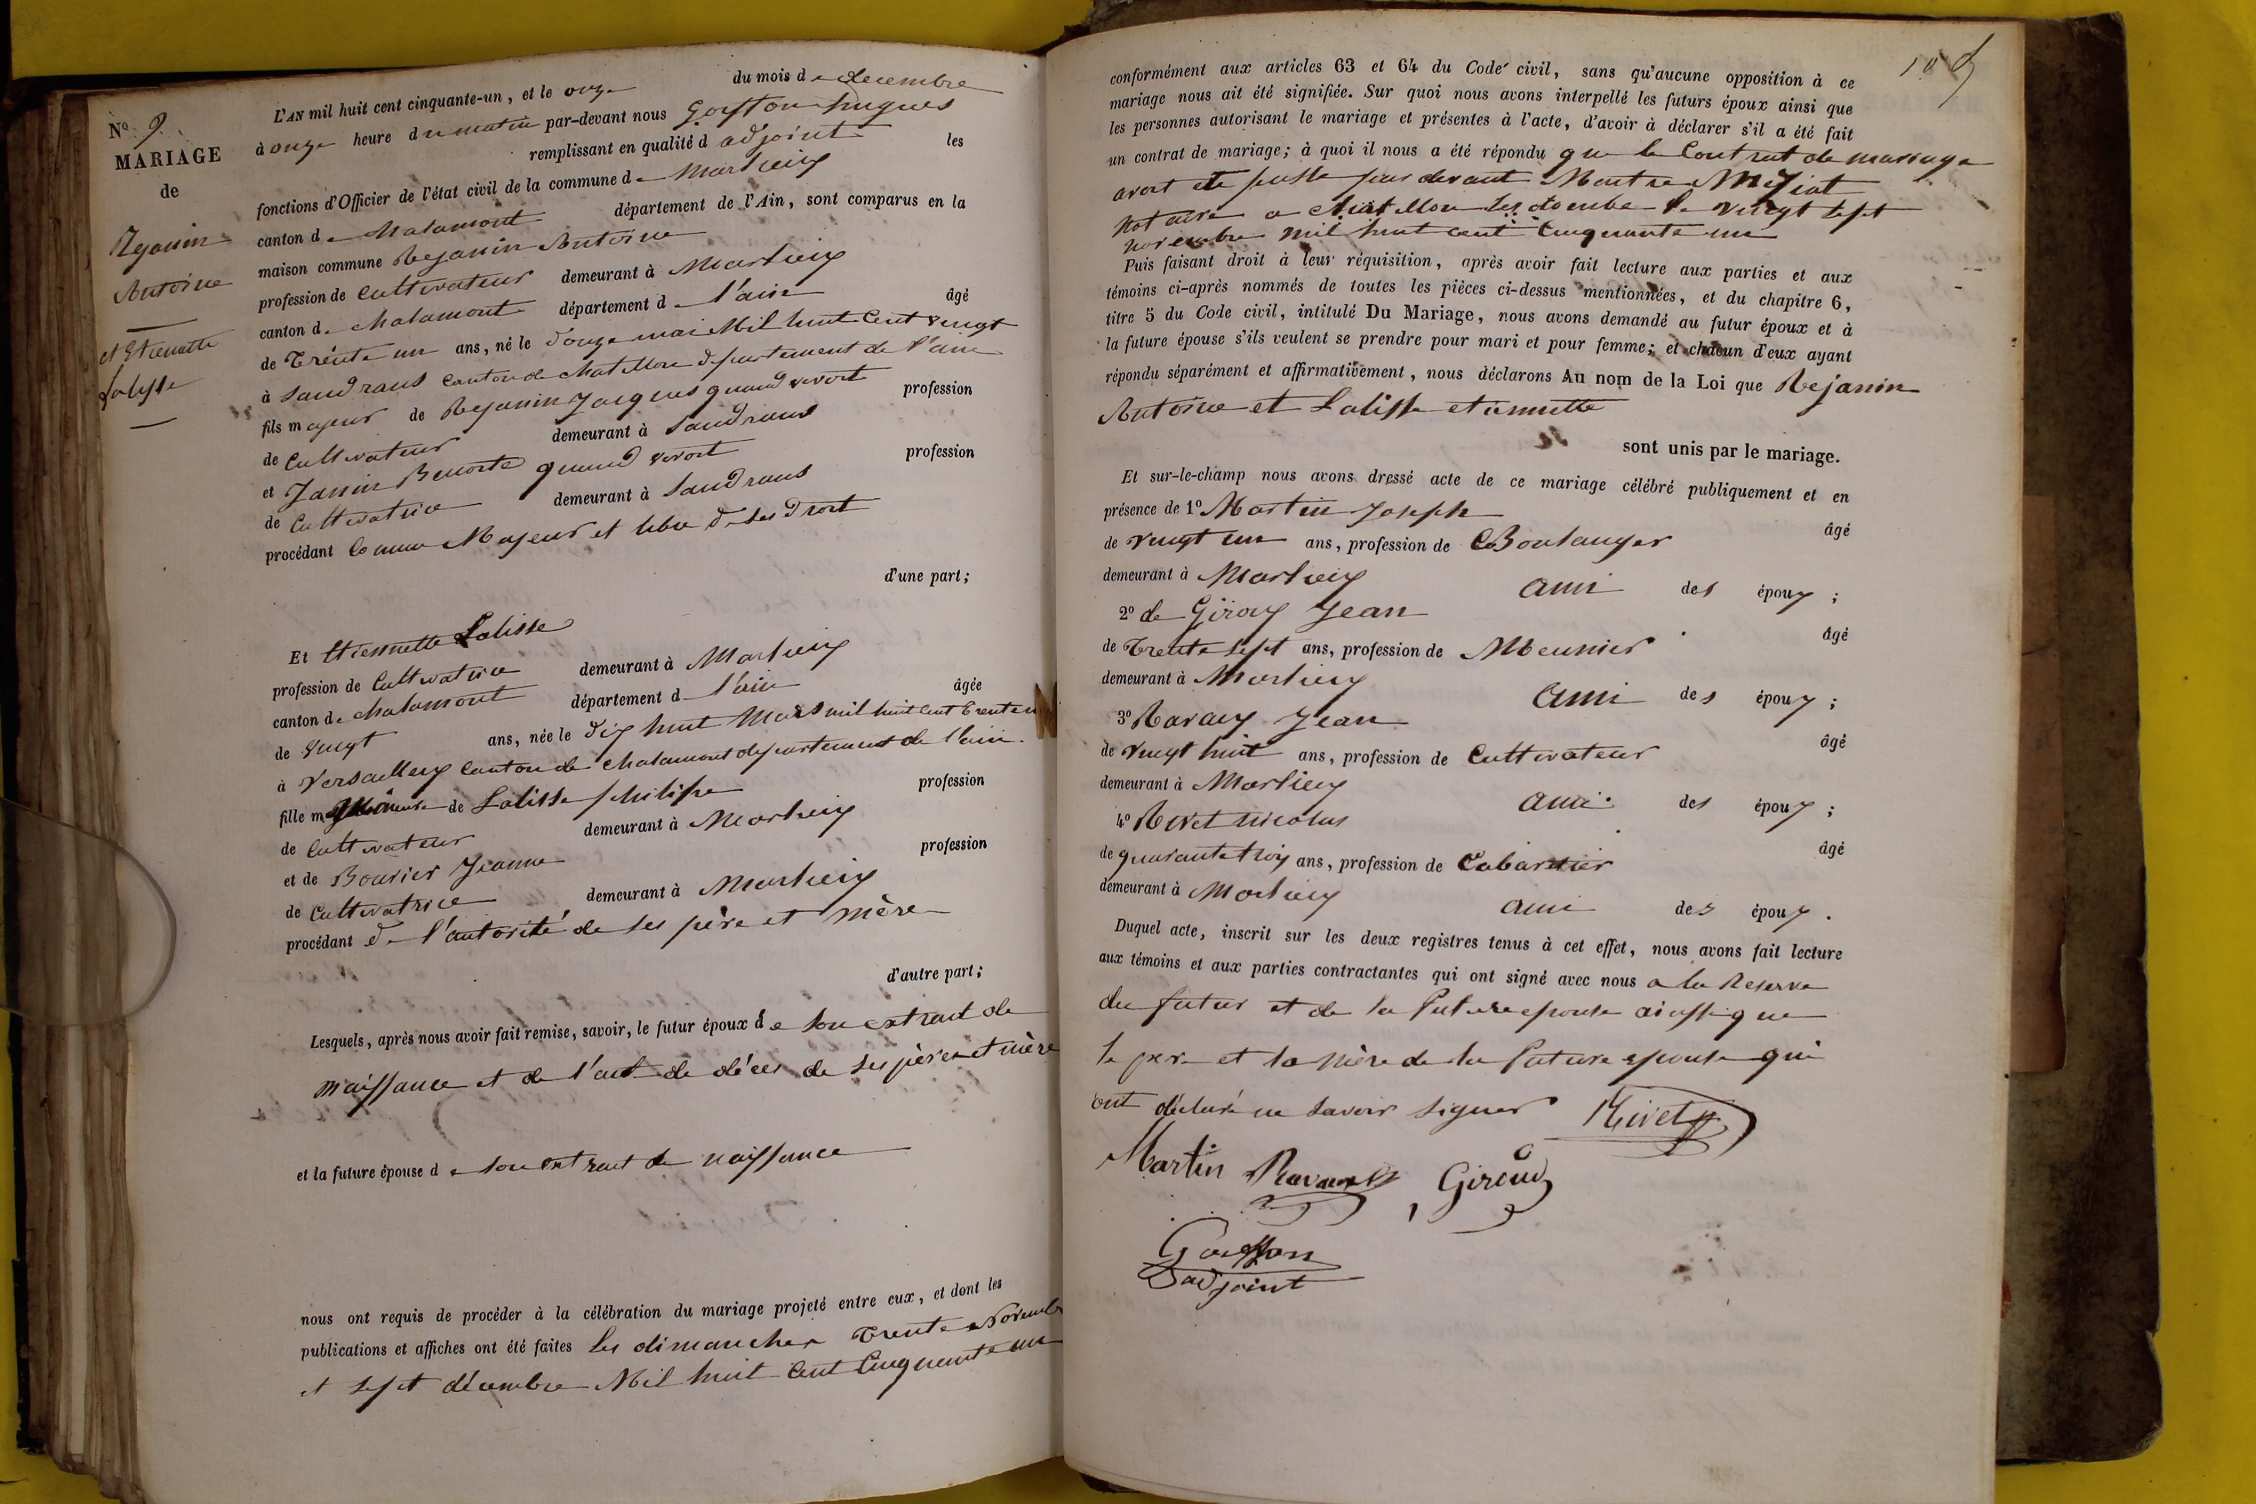 N° 9
MARIAGE
de
Rejanin
Antoine
et Etiennette
Lalisse
L'AN mil huit cent cinquante-un, et le onze du mois de decembre
à onze heure du matin par-devant nous Goiffon hugues
remplissant en qualité d adjoint les
fonctions d'Officier de l'état civil de la commune de Marlieux
canton de Chalamont département de l'Ain, sont comparus en la
maison commune Rejanin Antoine
profession de Cultivateur demeurant à Marlieux
canton de Chalamont département de l'ain âgé
de Trente un ans, né le douze mai Mil huit Cent vingt
à Sandrans Canton de Chatillon département de l'ain
fils majeur de Rejanin Jacques quand vivoit profession
de Cultivateur demeurant à Sandrans
et Janin Benoite quand vivoit profession
de Cultivatrice demeurant à Sandrans
procédant Comme Majeur et libre de ses droit
d'une part;
Et Etiennette Lalisse
profession de Cultivatrice demeurant à Marlieux
canton de Chalamont département de l'ain âgée
de vingt ans, née le dix huit Mars mil huit cent trente un
à Versailleux Canton de Chalamont département de l'ain.
fille mineure de Lalisse philipe profession
de Cultivateur demeurant à Marlieux
et de Bouvier Jeanne profession
de Cultivatrice demeurant à Marlieux
procédant de l'autorité de ses père et mère
d'autre part;
Lesquels, après nous avoir fait remise, savoir, le futur époux de son extrait de
naissance et de l'act de décès de ses pères et mère
et la future épouse de son extrait de naissance
nous ont requis de procéder à la célébration du mariage projeté entre eux, et dont les
publications et affiches ont été faites les dimanches Trente Novembre
et sept décembre Mil huit Cent Cinquante un
conformément aux articles 63 et 64 du Code civil, sans qu'aucune opposition à ce
mariage nous ait été signifiée. Sur quoi nous avons interpellé les futurs époux ainsi que
les personnes autorisant le mariage et présentes à l'acte, d'avoir à déclarer s'il a été fait
un contrat de mariage; à quoi il nous a été répondu que le Contrat de mariage
avoit ete passe par devant Maitre
Notaire a Chatillon les dombe le vingt sept
novembre mil huit cent Cinquante un
Puis faisant droit à leur réquisition, après avoir fait lecture aux parties et aux
témoins ci-après nommés de toutes les pièces ci-dessus mentionnées, et du chapitre 6,
titre 5 du Code civil, intitulé Du Mariage, nous avons demandé au futur époux et à
la future épouse s'ils veulent se prendre pour mari et pour femme; et chacun d'eux ayant
répondu séparément et affirmativement, nous déclarons Au nom de la Loi que Rejanin
Antoine et Lalisse etiennette
sont unis par le mariage.
Et sur-le-champ nous avons dressé acte de ce mariage célébré publiquement et en
présence de 1° Martin Joseph âgé
de vingt un ans, profession de Boulanger
demeurant à Marlieux ami des époux;
2° de Giroux Jean âgé
de Trente sept ans, profession de Meunier
demeurant à Marlieux ami des époux;
3° Ravaux Jean âgé
de vingt huit ans, profession de Cultivateur
demeurant à Marlieux ami des époux;
4° Rivet nicolas âgé
de quarante troix ans, profession de Cabaretier
demeurant à Marlieux ami des époux.
Duquel acte, inscrit sur les deux registres tenus à cet effet, nous avons fait lecture
aux témoins et aux parties contractantes qui ont signé avec nous a la Reserve
du futur et de la future epouse ainssi que
le pere et la mère de la future epouse qui
ont déclaré ne savoir signer Rivet
Martin Ravaux Giroud
Goiffon
adjoint